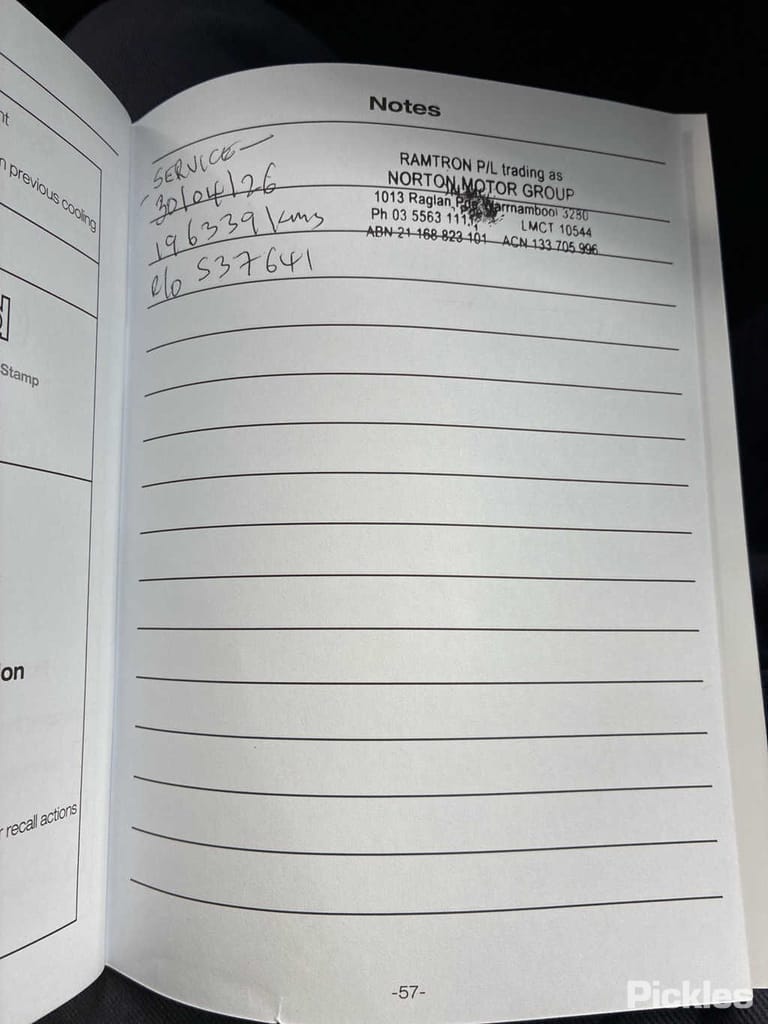 nt
n previous cooling
Stamp
on
r recall actions
Notes
SERVICE
30/04/26
196339 kms
R/O 537641
RAMTRON P/L trading as
NORTON MOTOR GROUP
1013 Raglan Warrnambool 3280
Ph 03 5563 111 LMCT 10544
ABN 21 168 823 101 ACN 133 705 996
-57-
Pickles